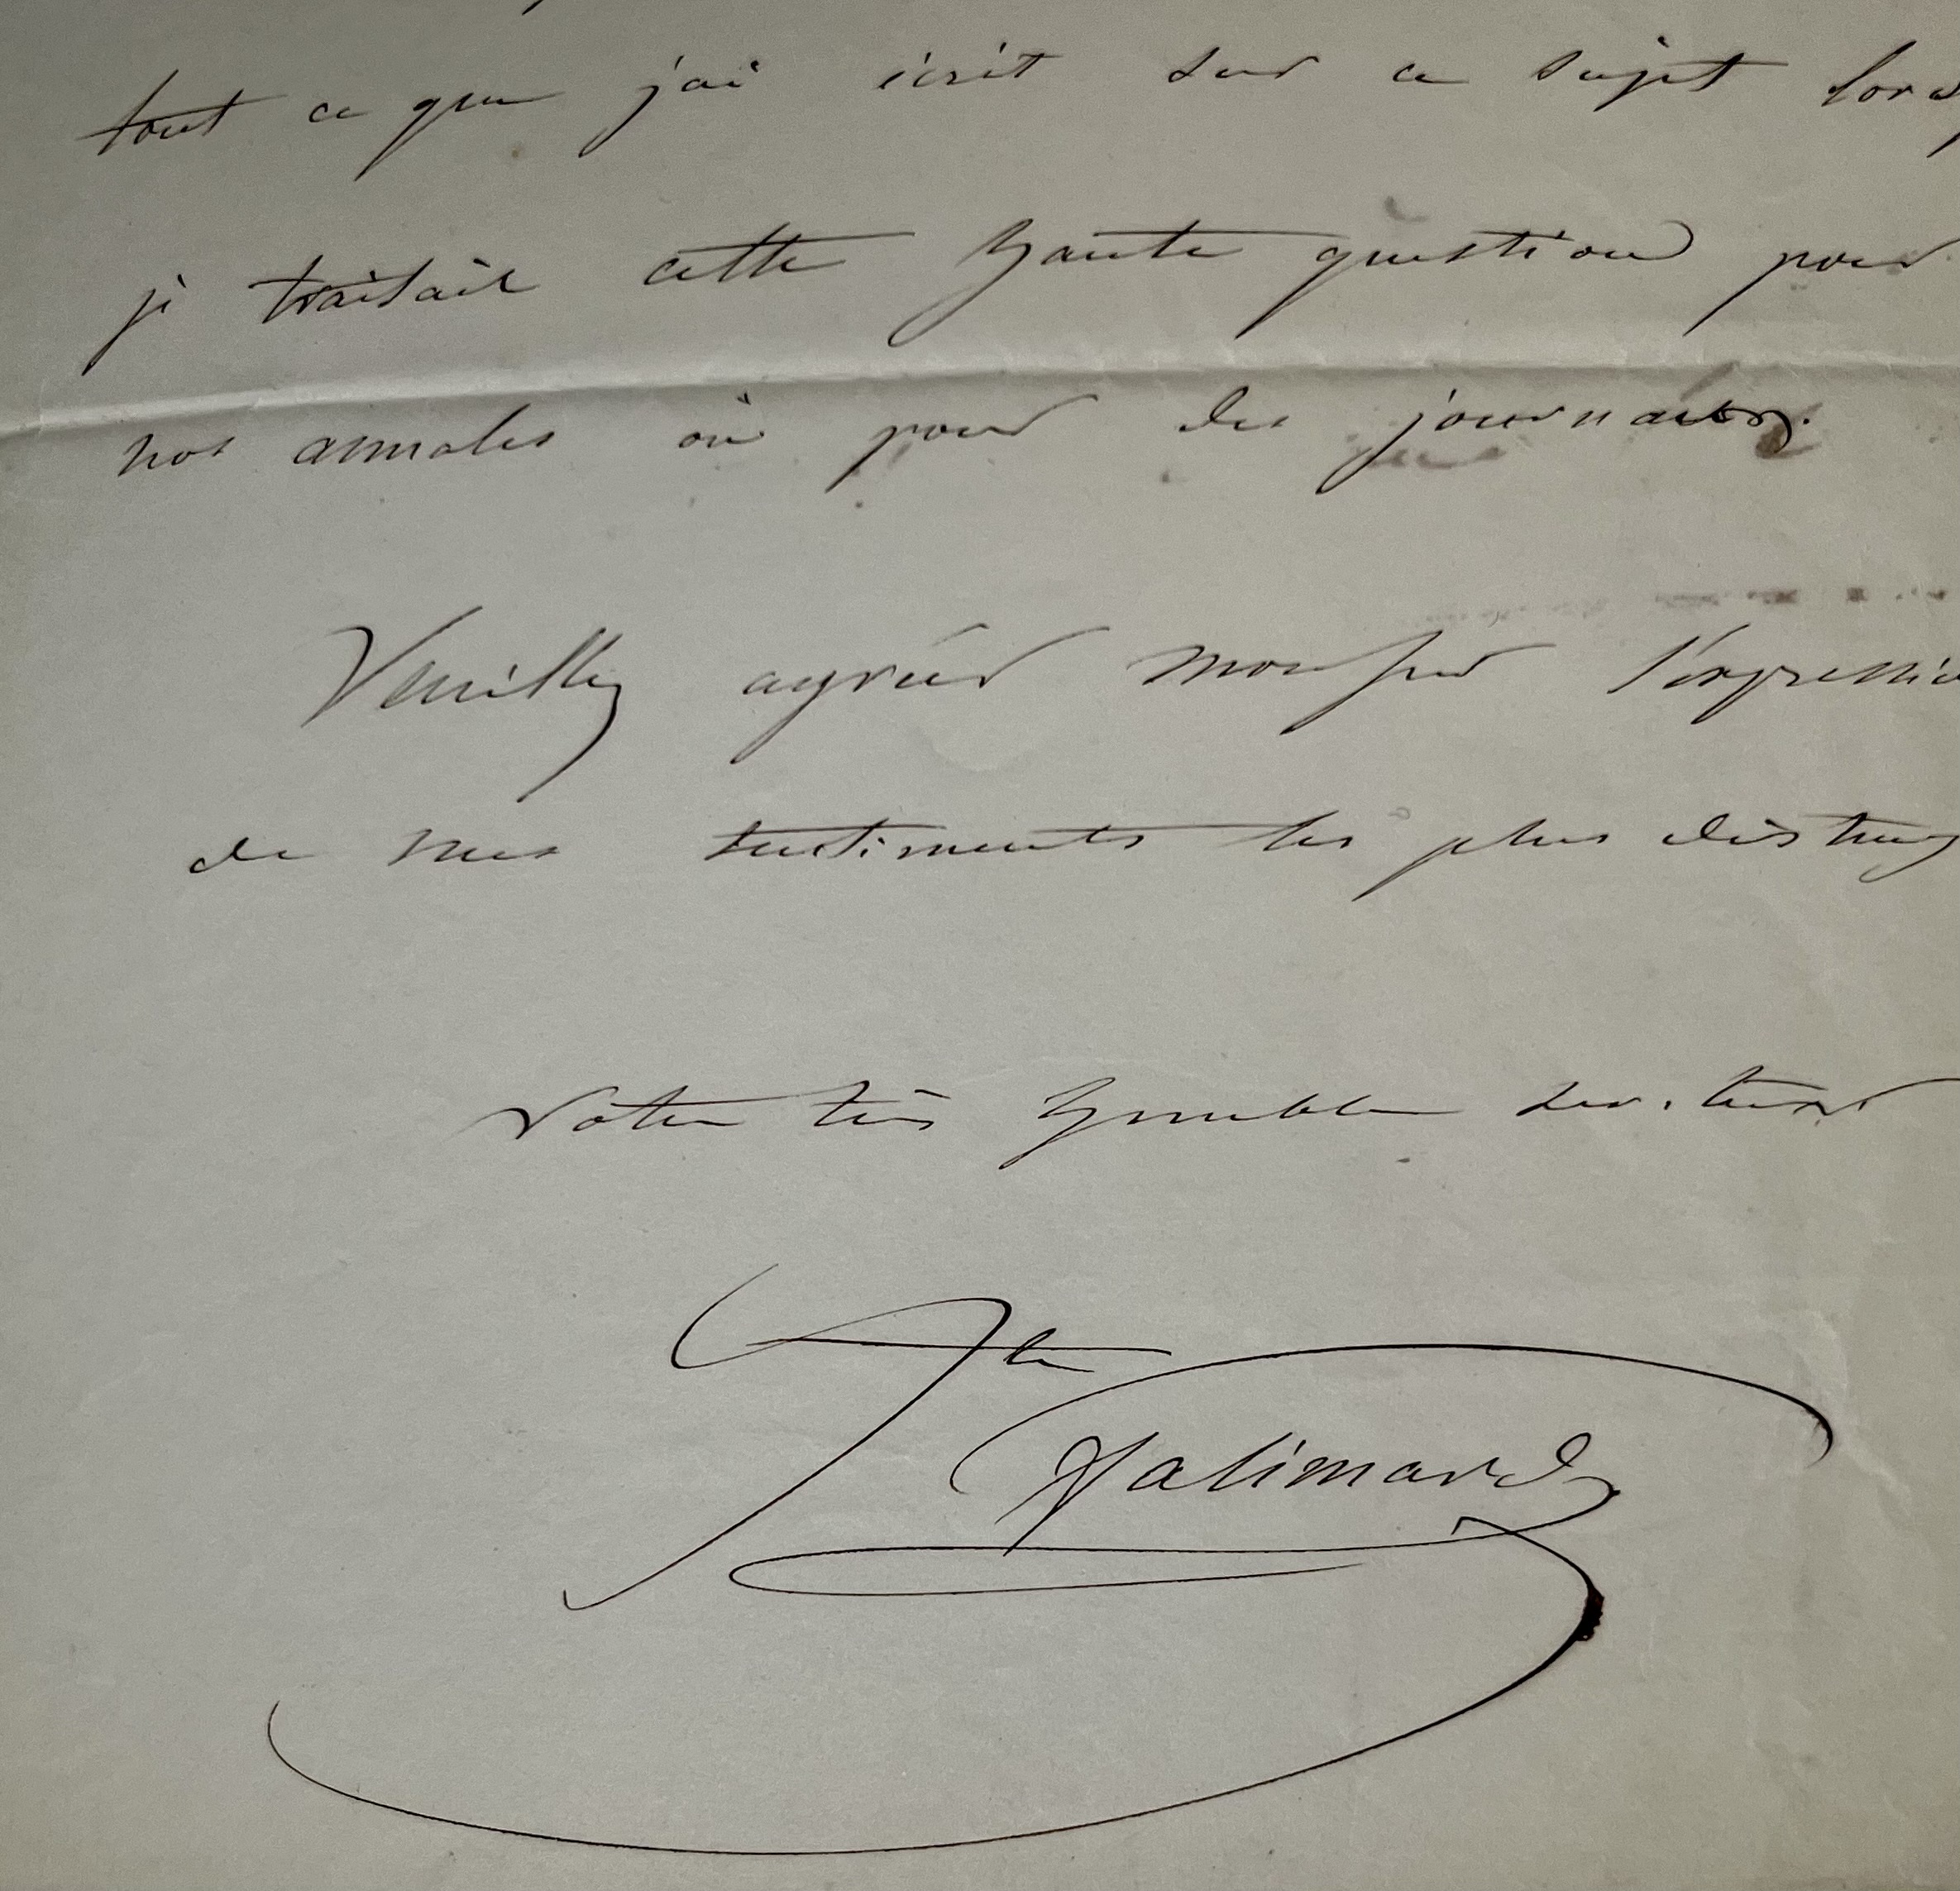 tout ce que j'ai écrit sur ce sujet lorsq
je traitais cette haute question pour
nos annales où pour des journaux.
Veuillez agréer monsieur l'expressio
de mes sentiments les plus disting
votre très humble serviteur
Galimard